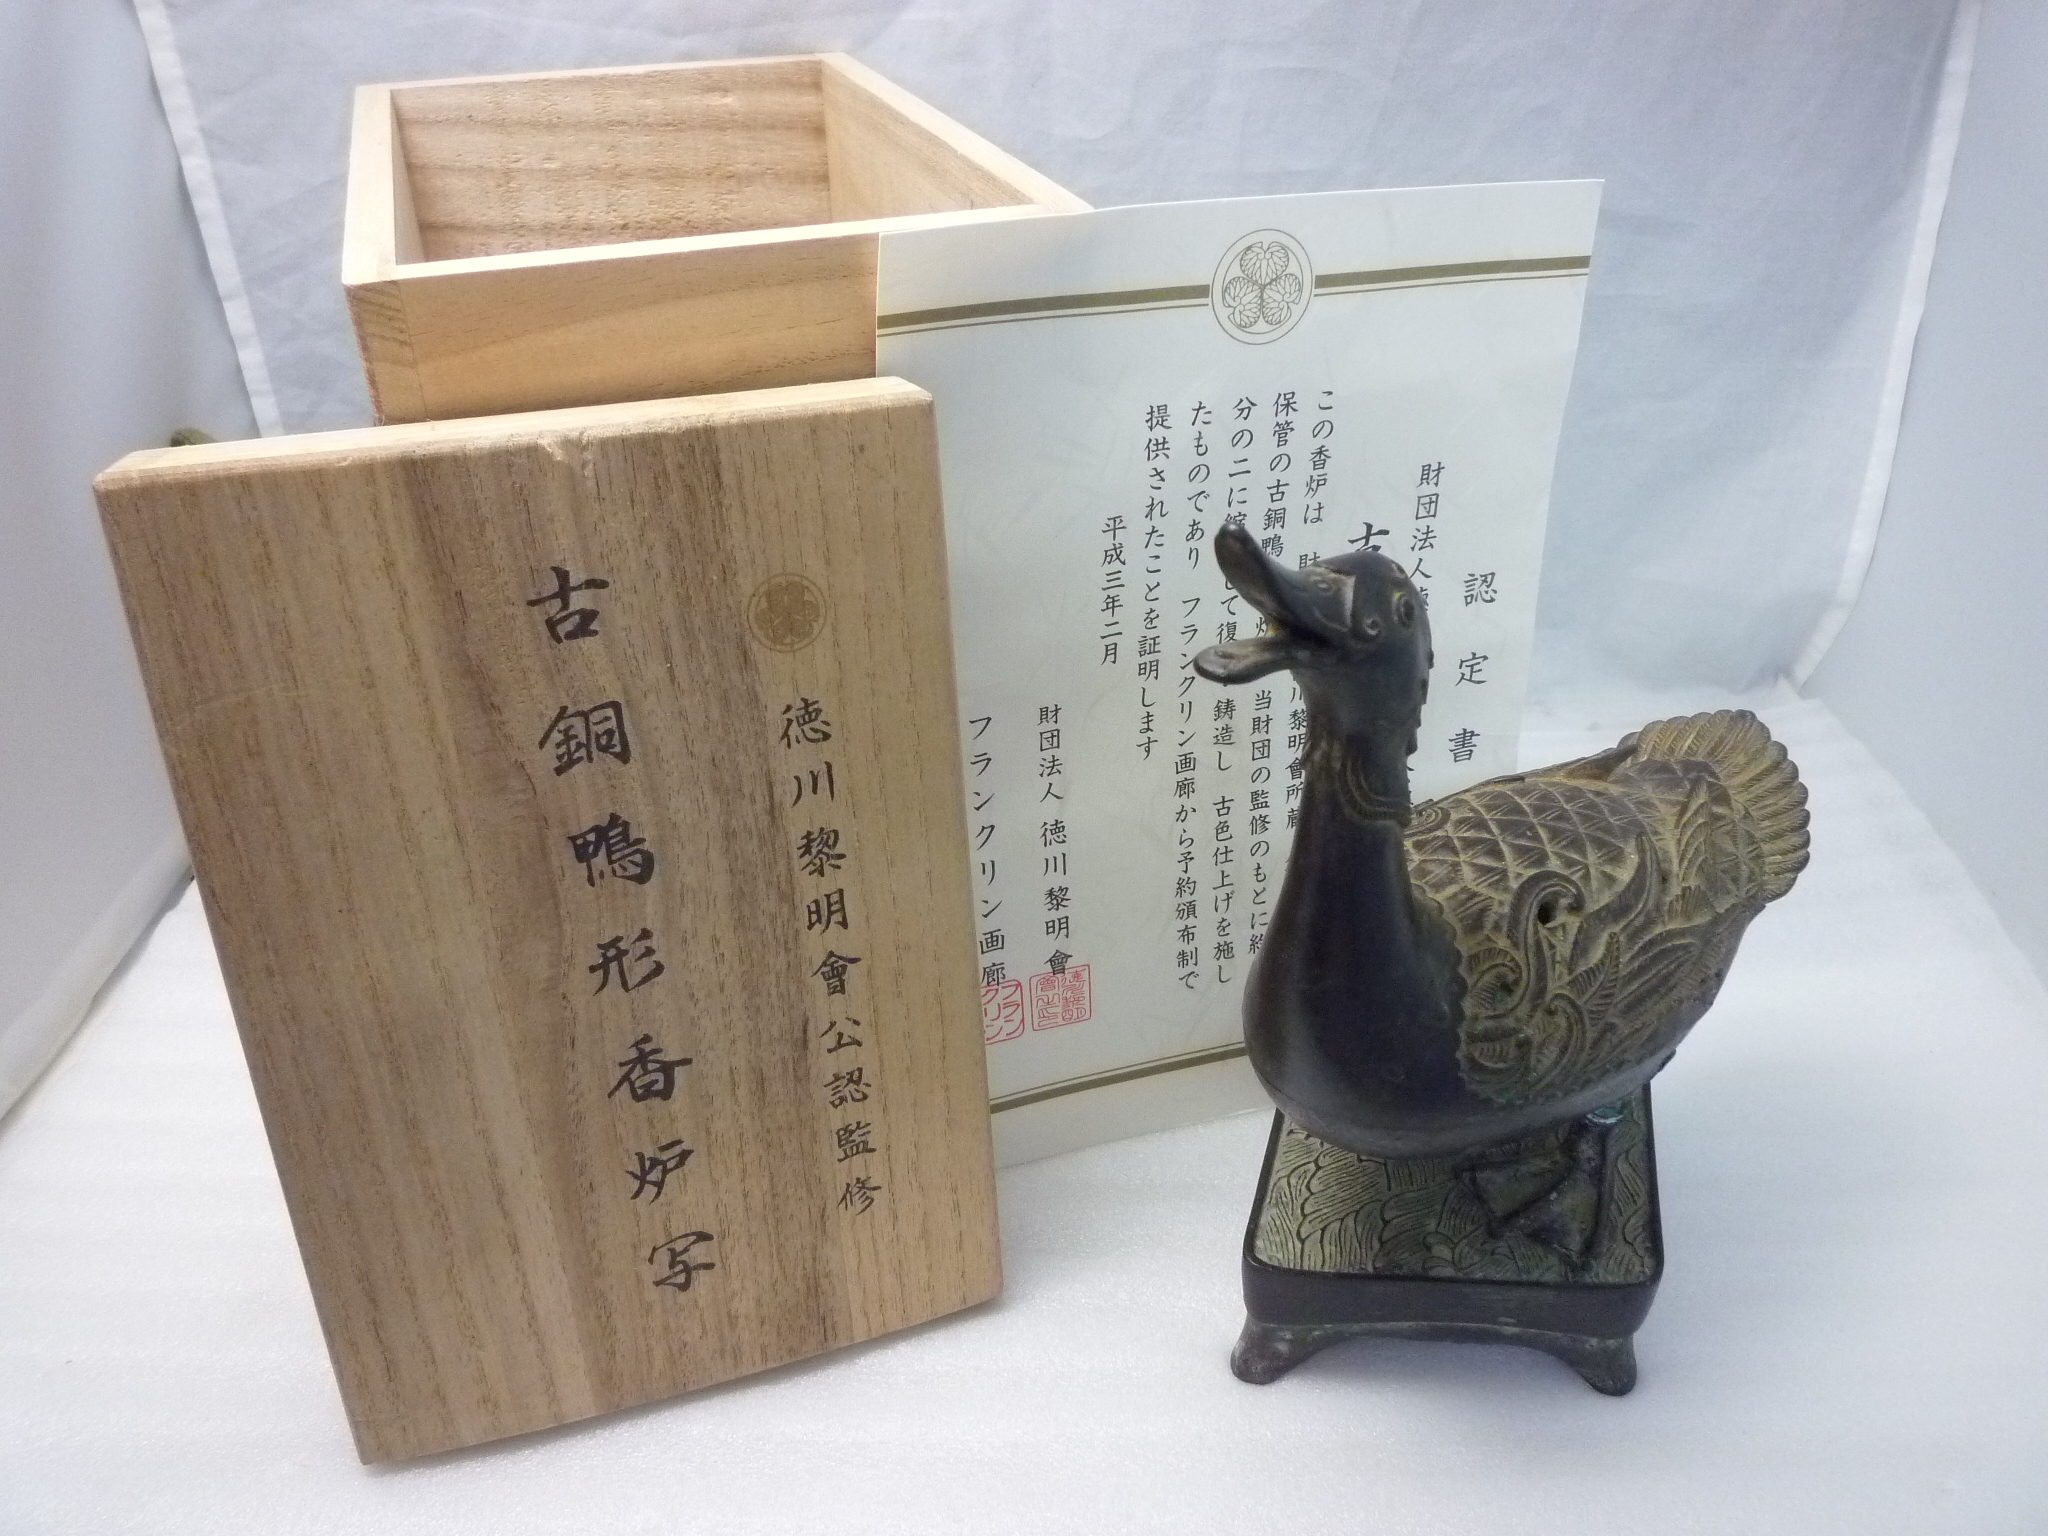 徳川黎明會公認監修
古銅鴨形香炉写
認定書
財団法人徳
古
この香炉は 財
川黎明會所蔵
保管の古銅鴨
炉
当財団の監修のもとに約
分の二に縮
して復
鋳造し 古色仕上げを施し
たものであり フランクリン画廊から予約頒布制で
提供されたことを証明します
平成三年二月
財団法人 徳川黎明會
フランクリン画廊
フランクリン